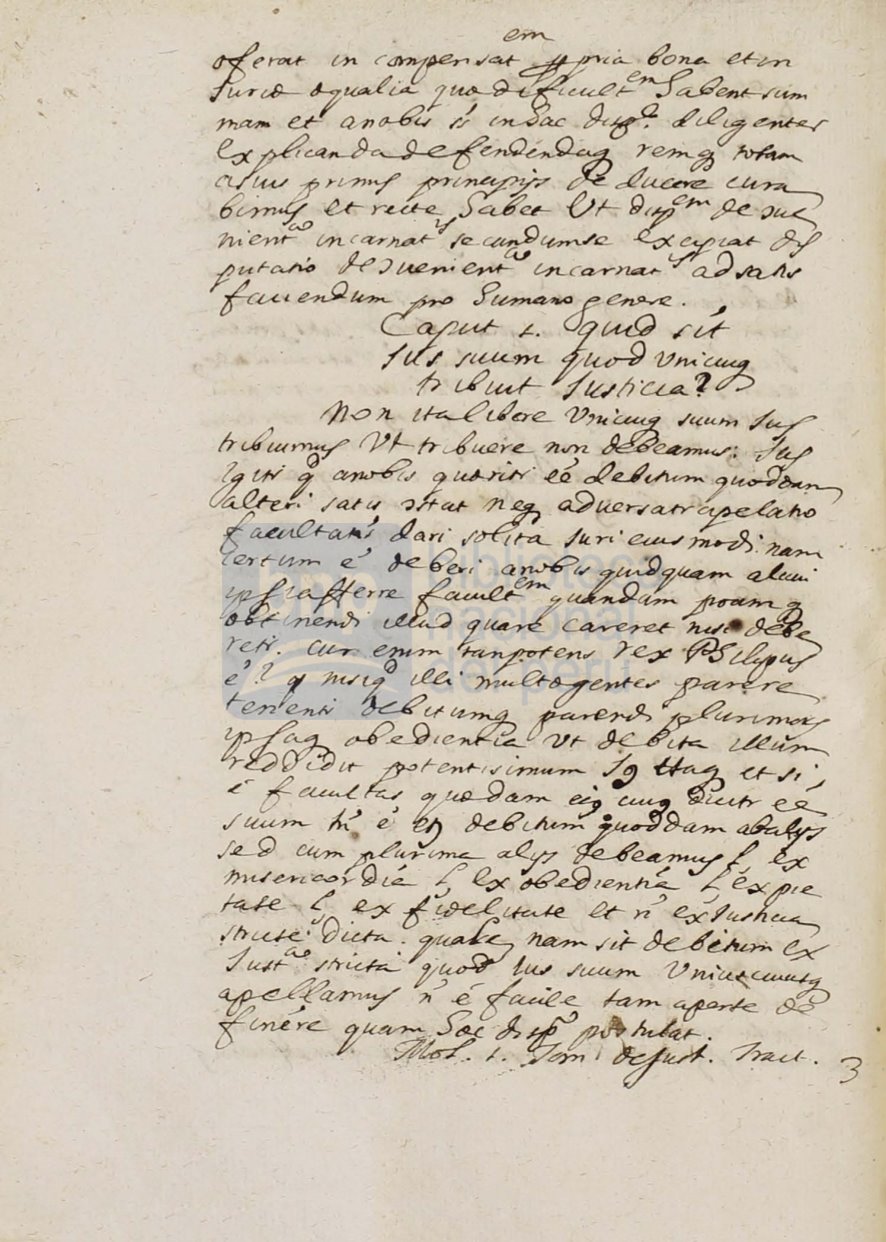 oferat in compensat^em ppria bona et in
Juriæ æqualia quæ dificult^em Habent sum
mam et a nobis is in hac disp^e. diligenter
explicanda defendendaq remq totam
a suis primis principijs de ducere cura
bimus et recte Habet Ut disp^em de
nient^a incarnat^is secundum se excipiat dis
putatio de convenient^a incarnat^is ad satis
faciendum pro Humano genere.
Caput 1. quid sit
Jus suum quod Unicuiq
tribuit Justicia?
Non ita libere Unicuiq suum Jus
tribuimus Ut tribuere non debeamus: Jus
igitr q^d a nobis quæritr eé debitum quoddam
alteri satis ɔstat neq adversatr apelatio
facultatis dari solita Juri eius modi. nam
certum é deberi a nobis quidquam alicui
ipsi afferre facult^em quandam
obtinendi illud quare careret nisi debe
retr. cur enim tam potens rex Philipus
é? q^a nisi q^d illi multæ gentes parere
tenentr debitumq parendi plurimas
ipsaq obedientia Ut debita illum
reddidit potentisimum Itaq et si
é facultas quædam eiq cuiq dicitr eé
suum tn é et debitum quoddam ab alijs
sed cum plurima alijs debeamus l, ex
misericordiá l, ex obedientiá l, ex pie
tate l, ex fidelitate et n ex Justicia
stricte dicta. quale nam sit debitum ex
Just^a stricta quod Jus suum Uniuscuiusq
apellamus n é facile tam aperte de
finére quam Hæc disp^o postulat.
Mol. 1. Tom de Just. tract.
3
biblioteca
nacional
del perú